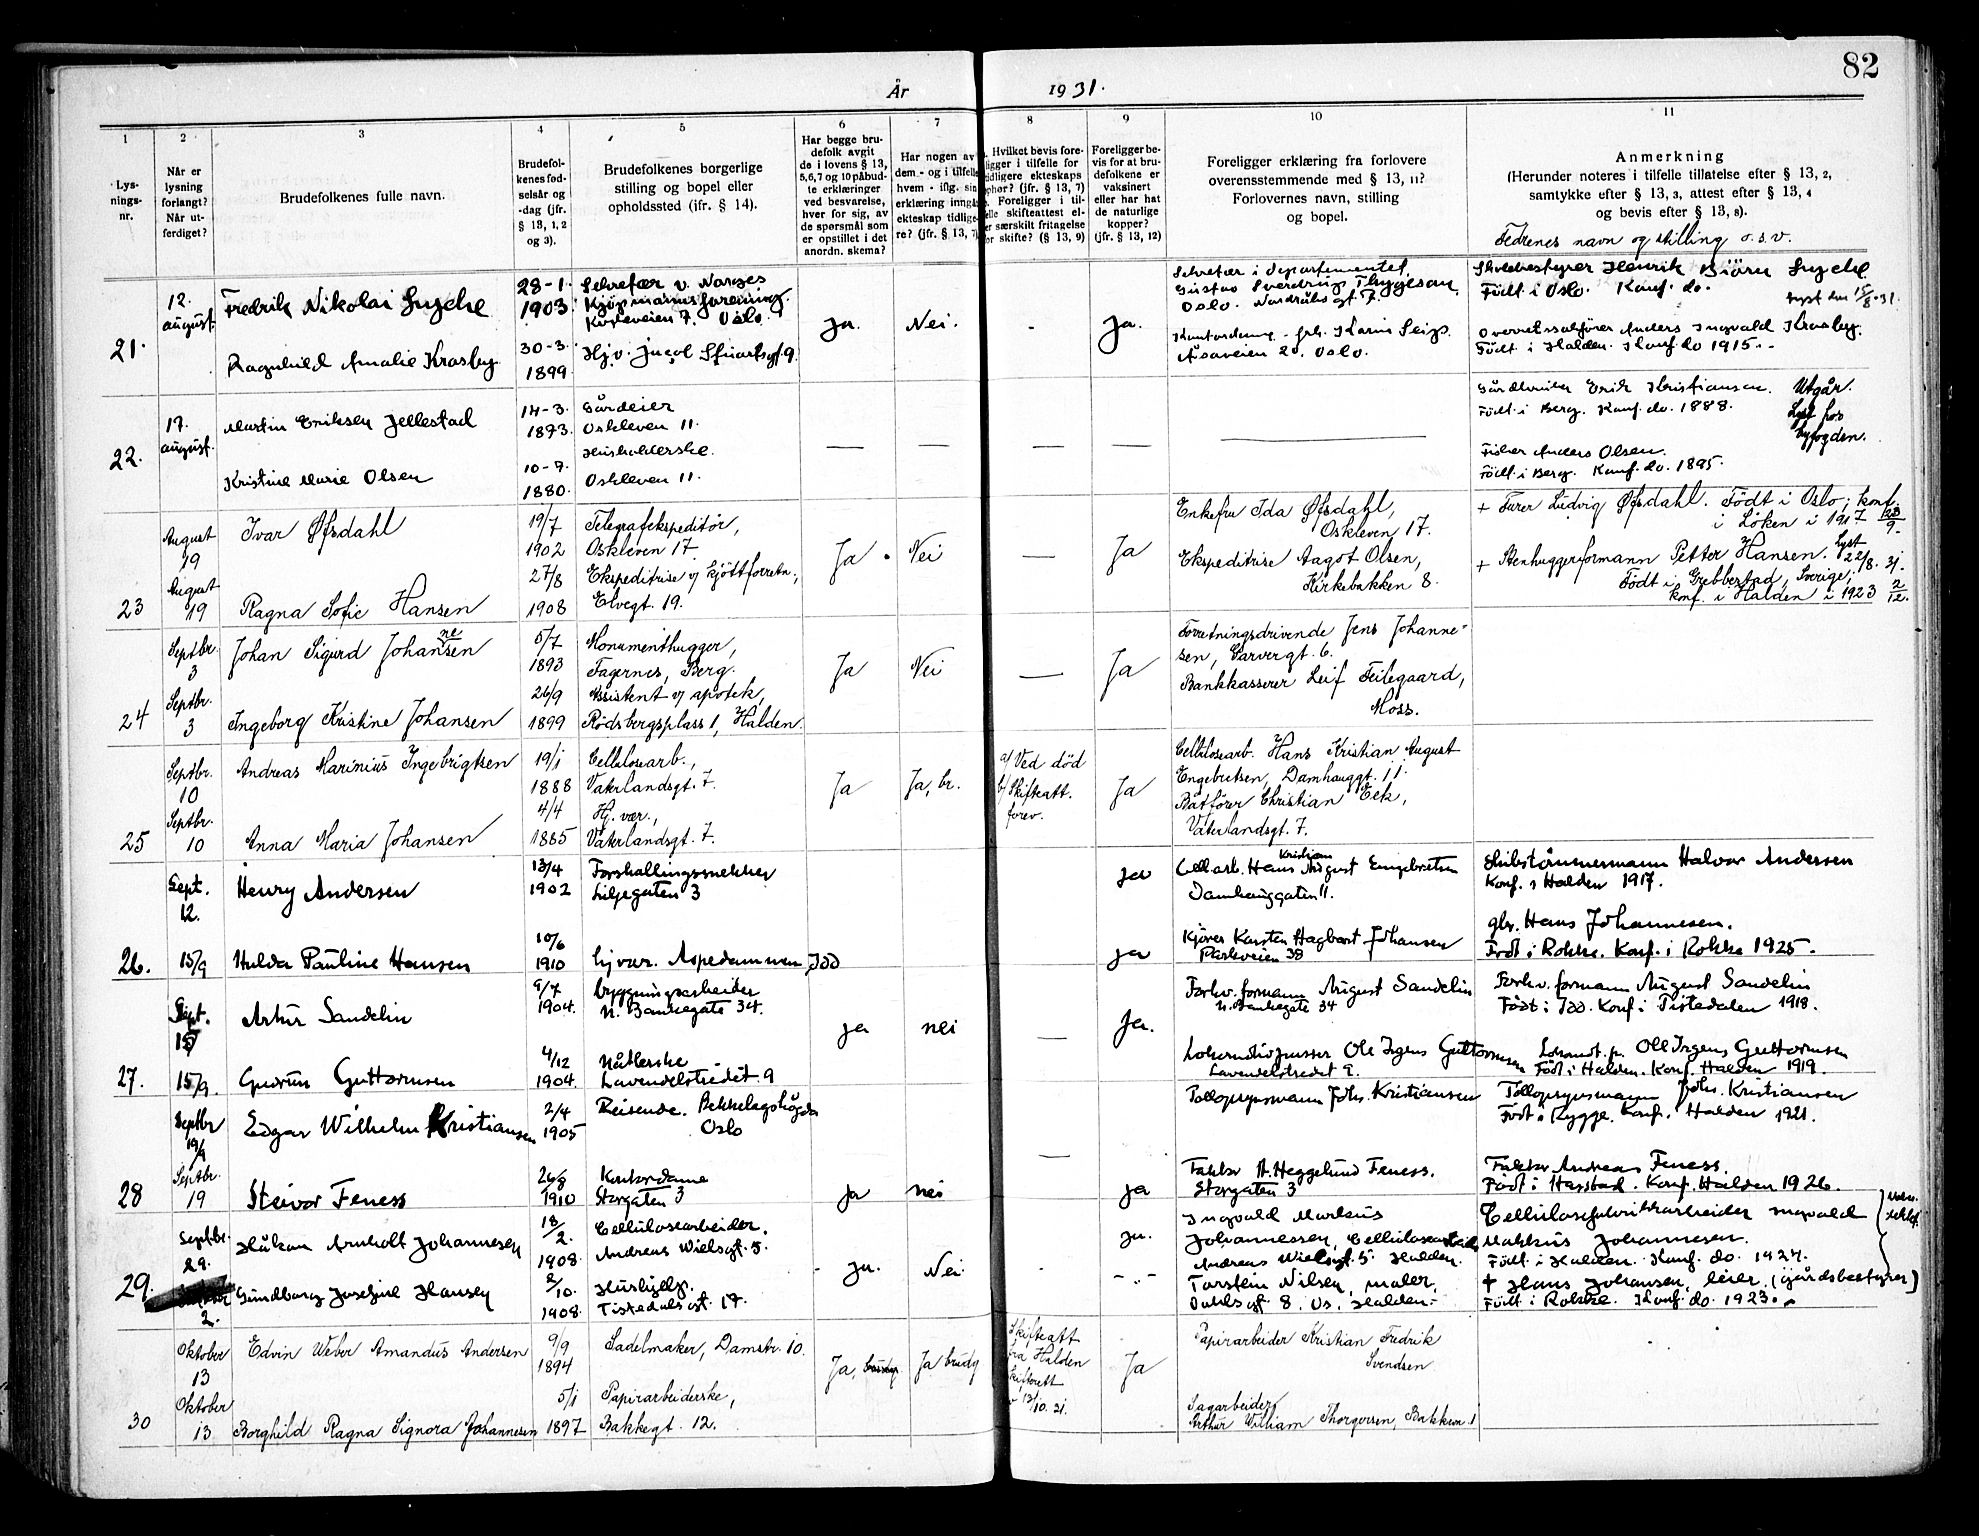 82
År 1931.
1 2 3 4 5 6 7 8 9 10 11
Lysningsnr.
Når er lysning forlangt? Når utferdiget?
Brudefolkenes fulle navn.
Brudefolkenes fødselsår og -dag (jfr. § 13, 1, 2 og 3).
Brudefolkenes borgerlige stilling og bopel eller opholdssted (ifr. § 14).
Har begge brudefolk avgit de i lovens § 13, 5,6,7 og 10 påbudte erklæringer ved besvarelse, hver for sig, av de spørsmål som er opstillet i det anordn. skema?
Har nogen av dem - og i tilfelle hvem - iflg. sin erklæring inngå ekteskap tidligere? (jfr. § 13, 7)
Hvilket bevis foreligger i tilfelle for tidligere ekteskaps ophør? (jfr. § 13, 7) Foreligger i tilfelle skifteattest eller særskilt fritagelse for skifte? (§ 13, 9)
Foreligger bevis for at brudefolkene er vaksinert eller har hat de naturlige kopper? (jfr. § 13, 12)
Foreligger erklæring fra forlovere overensstemmende med § 13, 11? Forlovernes navn, stilling og bopel.
Anmerkning
(Herunder noteres i tilfelle tillatelse efter § 13, 2, samtykke efter § 13, 3, attest efter § 13, 4 og bevis efter § 13, 8).
Fedrenes navn og stilling o.s.v.
21.
12. august.
Fredrik Nikolai
28-1. 1903.
Sekretær v. Norges
Kjøpmannsforening.
7. Oslo.
Ragnhild Amalie Krosby
30-3. 1899
Hj.v. Jacob 9.
Ja. Nei. - Ja.
Sekretær i Departementet,
Gustav Sverdrup Thygeson
Oslo. 7.
Kontordame - frk. Karin
Åsaveien 20. Oslo.
Henrik Bjørn
Født i Oslo. Konf. do.
Lyst den 15/8-31.
Overrettssakfører Anders Ingvald Krosby.
Født i Halden. Konf. do 1915.
22.
17. august.
Martin Eriksen Jellestad
14-3. 1873.
Gårdeier
Oskleven 11.
Kristine Marie Olsen
10-7. 1880.
Husholderske.
Oskleven 11.
Erik Kristiansen.
Født i Berg. Konf. do. 1888.
Utgår.
Lyst hos
byfogden.
Fisker Anders Olsen.
Født i Berg. Konf. do. 1895.
23
August 19
Ivar Øfsdahl
19/7 1902
Telegrafekspeditør,
Oskleven 17.
August 19
Ragna Sofie Hansen
27/8 1908
Ekspeditrise v/ kjøttforretn.,
Elvegt. 19.
Ja. Nei — Ja
Enkefru Ida Øfsdahl,
Oskleven 17.
Ekspeditrise Aagot Olsen,
Kirkebakken 8.
+ Furer Ludvig Øfsdahl. Født i Oslo; konf.
i Løken i 1917
Lyst 22/8. 31.
+ Stenhuggerformann Petter Hansen.
Født i Grebbestad, Sverige;
konf. i Halden i 1923 2/12.
24
Septbr. 3
Johan Sigurd Johansen
ne
5/7 1893
Monumenthugger,
Fagernes, Berg.
Septbr. 3
Ingeborg Kristine Johansen
26/9 1899
Assistent v/ apotek,
Rødsbergsplass 1, Halden.
Ja Nei — Ja
Forretningsdrivende Jens Johanne-
sen, Garvergt. 6.
Bankkasserer Leif Feilegaard,
Moss.
25
Septbr. 10
Andreas Marinius Ingebrigtsen
19/1 1888
Cellulosearb.,
Vaterlandsgt. 7.
Septbr. 10
Anna Maria Johansen
4/4 1885
Hj. vær.,
Vaterlandsgt. 7.
Ja Ja, br.
a/ Ved død
b/ Skifteatt.
forev.
Ja
Cellulosearb. Hans Kristian August
Engebretsen, Damhauggt. 11.
Båtfører Christian Eek,
Vaterlandsgt. 7.
26.
Sept. 12.
Henry Andersen
13/4 1902
Forskallingssnekker
Liljegaten 3
15/9
Hulda Pauline Hansen
10/6 1910
hj.vær. Aspedammen, Idd
ja
ja
Cell.arb. Hans Kristian August Engebretsen
Damhauggaten 11.
Kjører Karsten Hagbart Johansen
Parkveien 38
Skibstømmermann Halvor Andersen
Konf. i Halden 1917.
gbr. Hans Johannesen.
Født i Rokke. Konf. i Rokke 1925.
27.
Sept. 15
Artur Sandelin
9/7 1904.
bygningsarbeider
N. Bankegate 34.
15/9.
Gudrun Guttormsen
4/12 1904.
Nåtlerske
Lavendelstredet 9
ja nei — Ja.
Forhv. formann August Sandelin
N. Bankegate 34
Lokomotivpusser Ole Irgens Guttormsen
Lavendelstredet 9.
Forhv. formann August Sandelin
Født i Idd. Konf. i Tistedalen 1918.
Lokomot. p. Ole Irgens Guttormsen
Født i Halden. Konf. Halden 1919.
28
Septbr 19/9
Edgar Wilhelm Kristiansen
2/4 1905
Reisende. Bekkelagshøgda
Oslo
Septbr. 19
Steivor Feness
26/8 1910
Kontordame
Storgaten 3
ja nei — ja
Tollopsynsmann Johs. Kristiansen
Faktor A. Heggelund Feness.
Storgaten 3
Tollopsynsmann Johs. Kristiansen
Født i Rygge. Konf. Halden 1921.
Faktor Andreas Feness.
Født i Harstad. Konf. Halden 1926.
29.
Septbr. 29.
Håkon Arnholt Johannesen
18/2. 1908.
Cellulosearbeider.
Andreas Wielsgt. 5.
2.
Gundborg Josefine Hansen
2/10. 1908.
Hushjelp.
Tistedalsgt. 17.
- Ja. Nei. - ja.
-"-
Ingvald Markus
Johannessen, Cellulosearbeider
Andreas Wielsgt. 5. Halden.
Torstein Nilsen, maler,
8. Os. Halden.
Cellulosefabrikkarbeider Ingvald
Markus Johannesen.
Født i Halden. Konf. do. 1924.
+ Hans Johansen, leier (gårdsbestyrer)
Født i Rokke. Konf. do. 1923.
30
Oktober 13
Edvin Weber Amandus Andersen
9/9 1894
Sadelmaker, Damstr. 10.
Oktober 13
Borghild Ragna Signora Johannesen
5/1 1897
Papirarbeiderske,
Bakkegt. 12.
Ja, brudg. Ja brudg
Skifteatt
fra Halden
skifterett
v 13/10. 31.
Ja
Papirarbeider Kristian Fredrik
Svendsen
Sagarbeider
Arthur William Thorgersen, Bakken 1